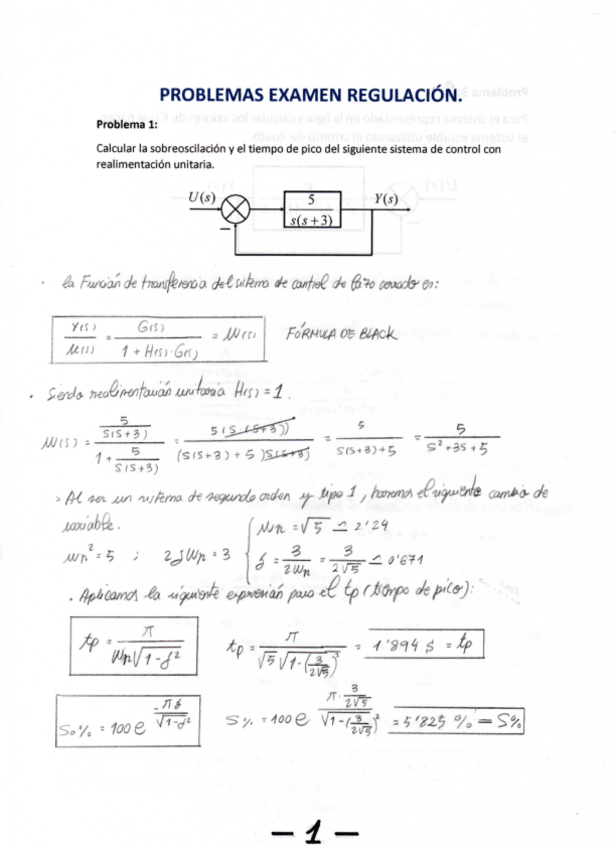 PROBLEMAS EXAMEN REGULACIÓN.
Problema 1:
Calcular la sobreoscilación y el tiempo de pico del siguiente sistema de control con
realimentación unitaria.
U(s) 5 / s(s+3) Y(s)
−
· la Función de transferencia del sistema de control de lazo cerrado es:
Y(s)/U(s) = G(s)/(1 + H(s)·G(s)) = M(s) FÓRMULA DE BLACK
· Siendo realimentación unitaria H(s) = 1.
M(s) = (5/(S(S+3)))/(1 + 5/(S(S+3))) = 5(S(S+3))/((S(S+3)+5)S(S+3)) = 5/(S(S+3)+5) = 5/(S²+3S+5)
> Al ser un sistema de segundo orden y tipo 1, haremos el siguiente cambio de
variable.
Wn² = 5 ; 2𝛿Wn = 3
Wn = √5 ≃ 2'24
𝛿 = 3/(2Wn) = 3/(2√5) ≃ 0'671
· Aplicamos la siguiente expresión para el tp (tiempo de pico):
tp = π/(Wn√(1-𝛿²)) tp = π/(√5 √(1-(3/(2√5))²)) = 1'894 s = tp
So% = 100 e^(-π𝛿/√(1-𝛿²)) S% = 100 e^(π·(3/(2√5))/√(1-(3/(2√5))²)) = 5'825 % = S%
— 1 —